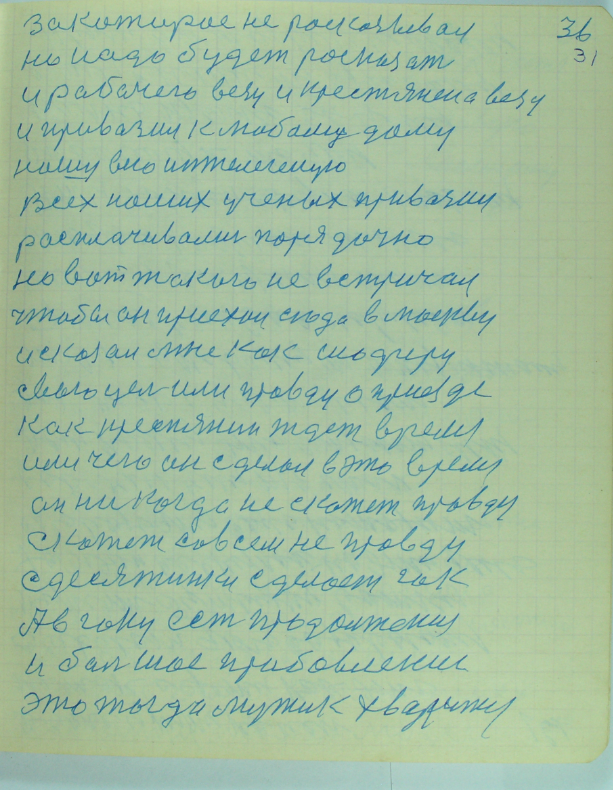 36
31
закоторое не росказывал
но надо будет росказат
и рабачего везу и крестянена везу
и привазил к любому дому
нашу всю интелегенцыю
всех наших ученых привазил
росплачивалис порядочно
но вот такого не встричал
чтобы он приехал сюда в москву
и сказал мне как шоферу
свою цел или правду о приезде
как крестянин ждет время
или чего он сделал в это время
он никогда не скажет правду
скажет совсем не правду
с десятинки сделает гок
Ав гоку ест продолжения
и балшое прибавление
это тогда мужик хва